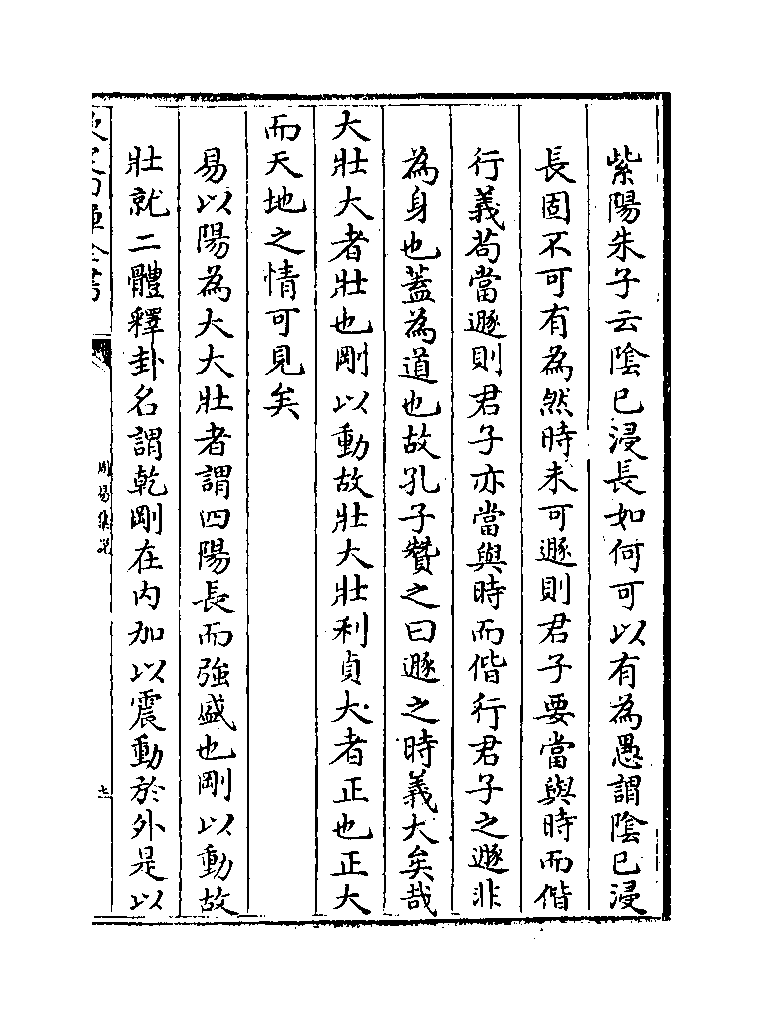 紫陽朱子云陰已浸長如何可以有為愚謂陰已浸
長固不可有為然時未可遯則君子要當與時而偕
行義茍當遯則君子亦當與時而偕行君子之遯非
為身也蓋為道也故孔子贊之曰遯之時義大矣哉
大壯大者壯也剛以動故壯大壯利貞大者正也正大
而天地之情可見矣
易以陽為大大壯者謂四陽長而強盛也剛以動故
壯就二體釋卦名謂乾剛在内加以震動於外是以
周易集說